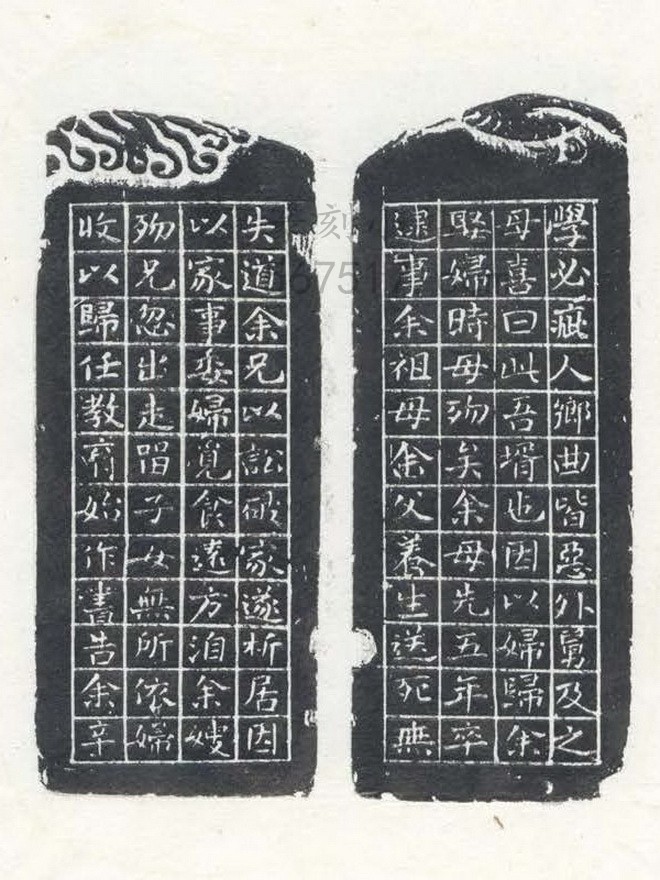 學必疵人鄉曲皆惡外舅及之
母喜曰此吾壻也因以婦歸余
娶婦時母歿矣余母先五年卒
逮事余祖母余父養生送死無
失道余兄以訟破家遂析居因
以家事委婦覓食遠方洎余嫂
歿兄忽出走留子女無所依婦
收以歸任教育始作書告余辛
刻
67517